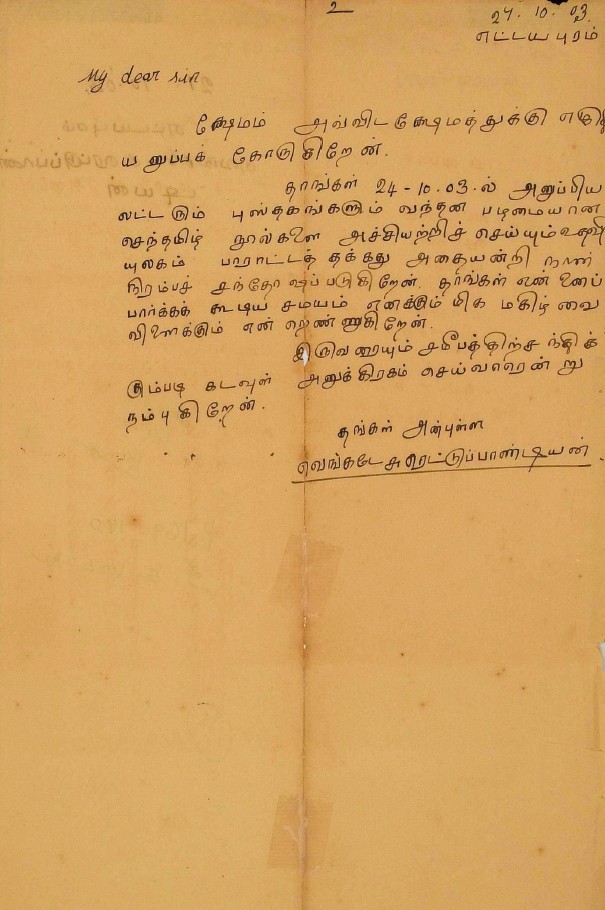 2
27. 10. 03.
எட்டயபுரம்
My dear sir
க்ஷேமம் அவ்விட க்ஷேமத்துக்கு எழுதி
யனுப்பக் கோருகிறேன்.
தாங்கள் 24-10.03.ல் அனுப்பிய
புஸ்தகங்களும் வந்தன பழமையான
செந்தமிழ் நூல்களை அச்சியற்றிச் செய்யும்
யுலகம் பாராட்டத் தக்கது அதையன்றி நான்
நிரம்பச் சந்தோஷப் படுகிறேன். தாங்கள் என்னைப்
பார்க்கக் கூடிய சமயம் எனக்கும் மிக மகிழ்வை
விளைக்கும் என்றெண்ணுகிறேன்.
இருவரையும் சமீபத்திற்சந்திக்
கும்படி கடவுள் அனுக்கிரகம் செய்வாரென்று
நம்புகிறேன்.
தங்கள் அன்புள்ள
வெங்கடேசுரெட்டுப்பாண்டியன்.